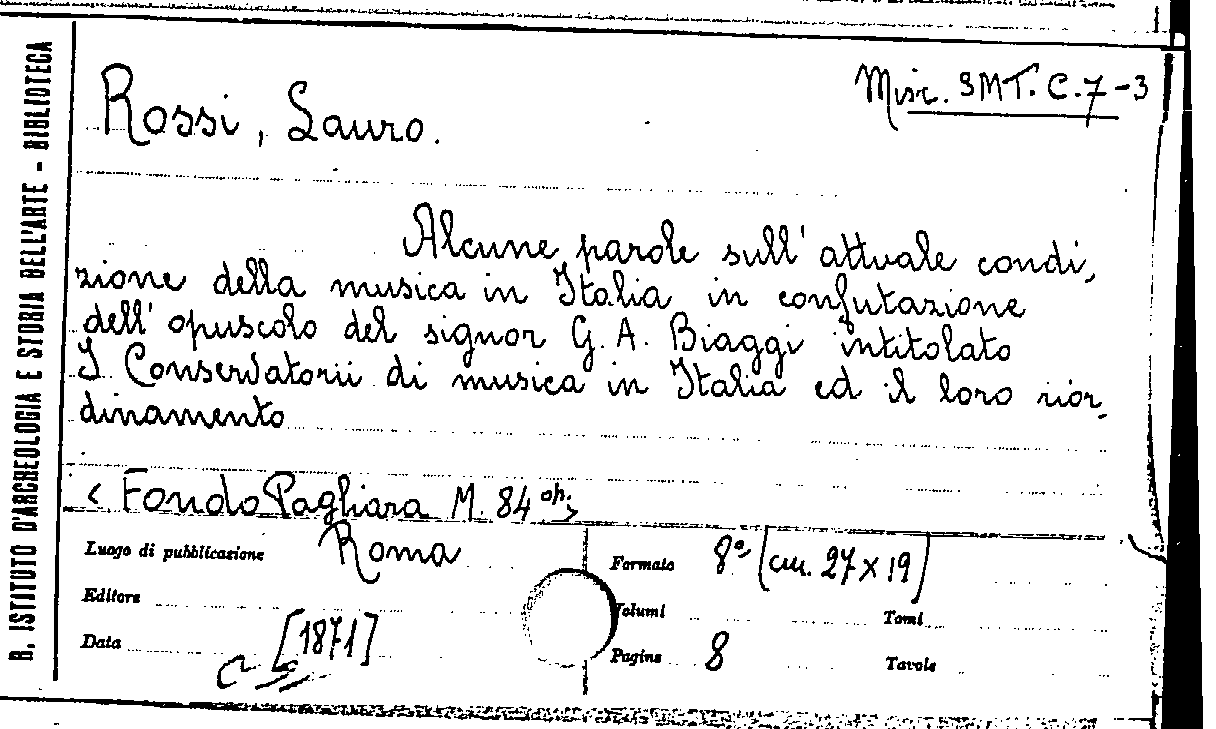 R. ISTITUTO D'ARCHEOLOGIA E STORIA DELL'ARTE - BIBLIOTECA
Misc. SMT. C. 7-3
Rossi, Lauro.
Alcune parole sull' attuale condi,
zione della musica in Italia in confutazione
dell' opuscolo del signor G. A. Biaggi intitolato
I Conservatorii di musica in Italia ed il loro rior,
dinamento
< Fondo Pagliara M. 84 op. >
Luogo di pubblicazione Roma
Formato 8° (cm. 27 x 19)
Editore
Volumi
Tomi
Data [1871]
Pagine 8
Tavole